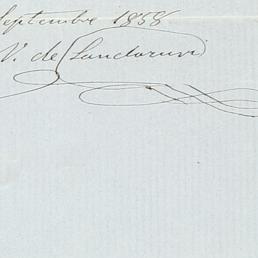 Septembre 1858
V. de Landoruvi